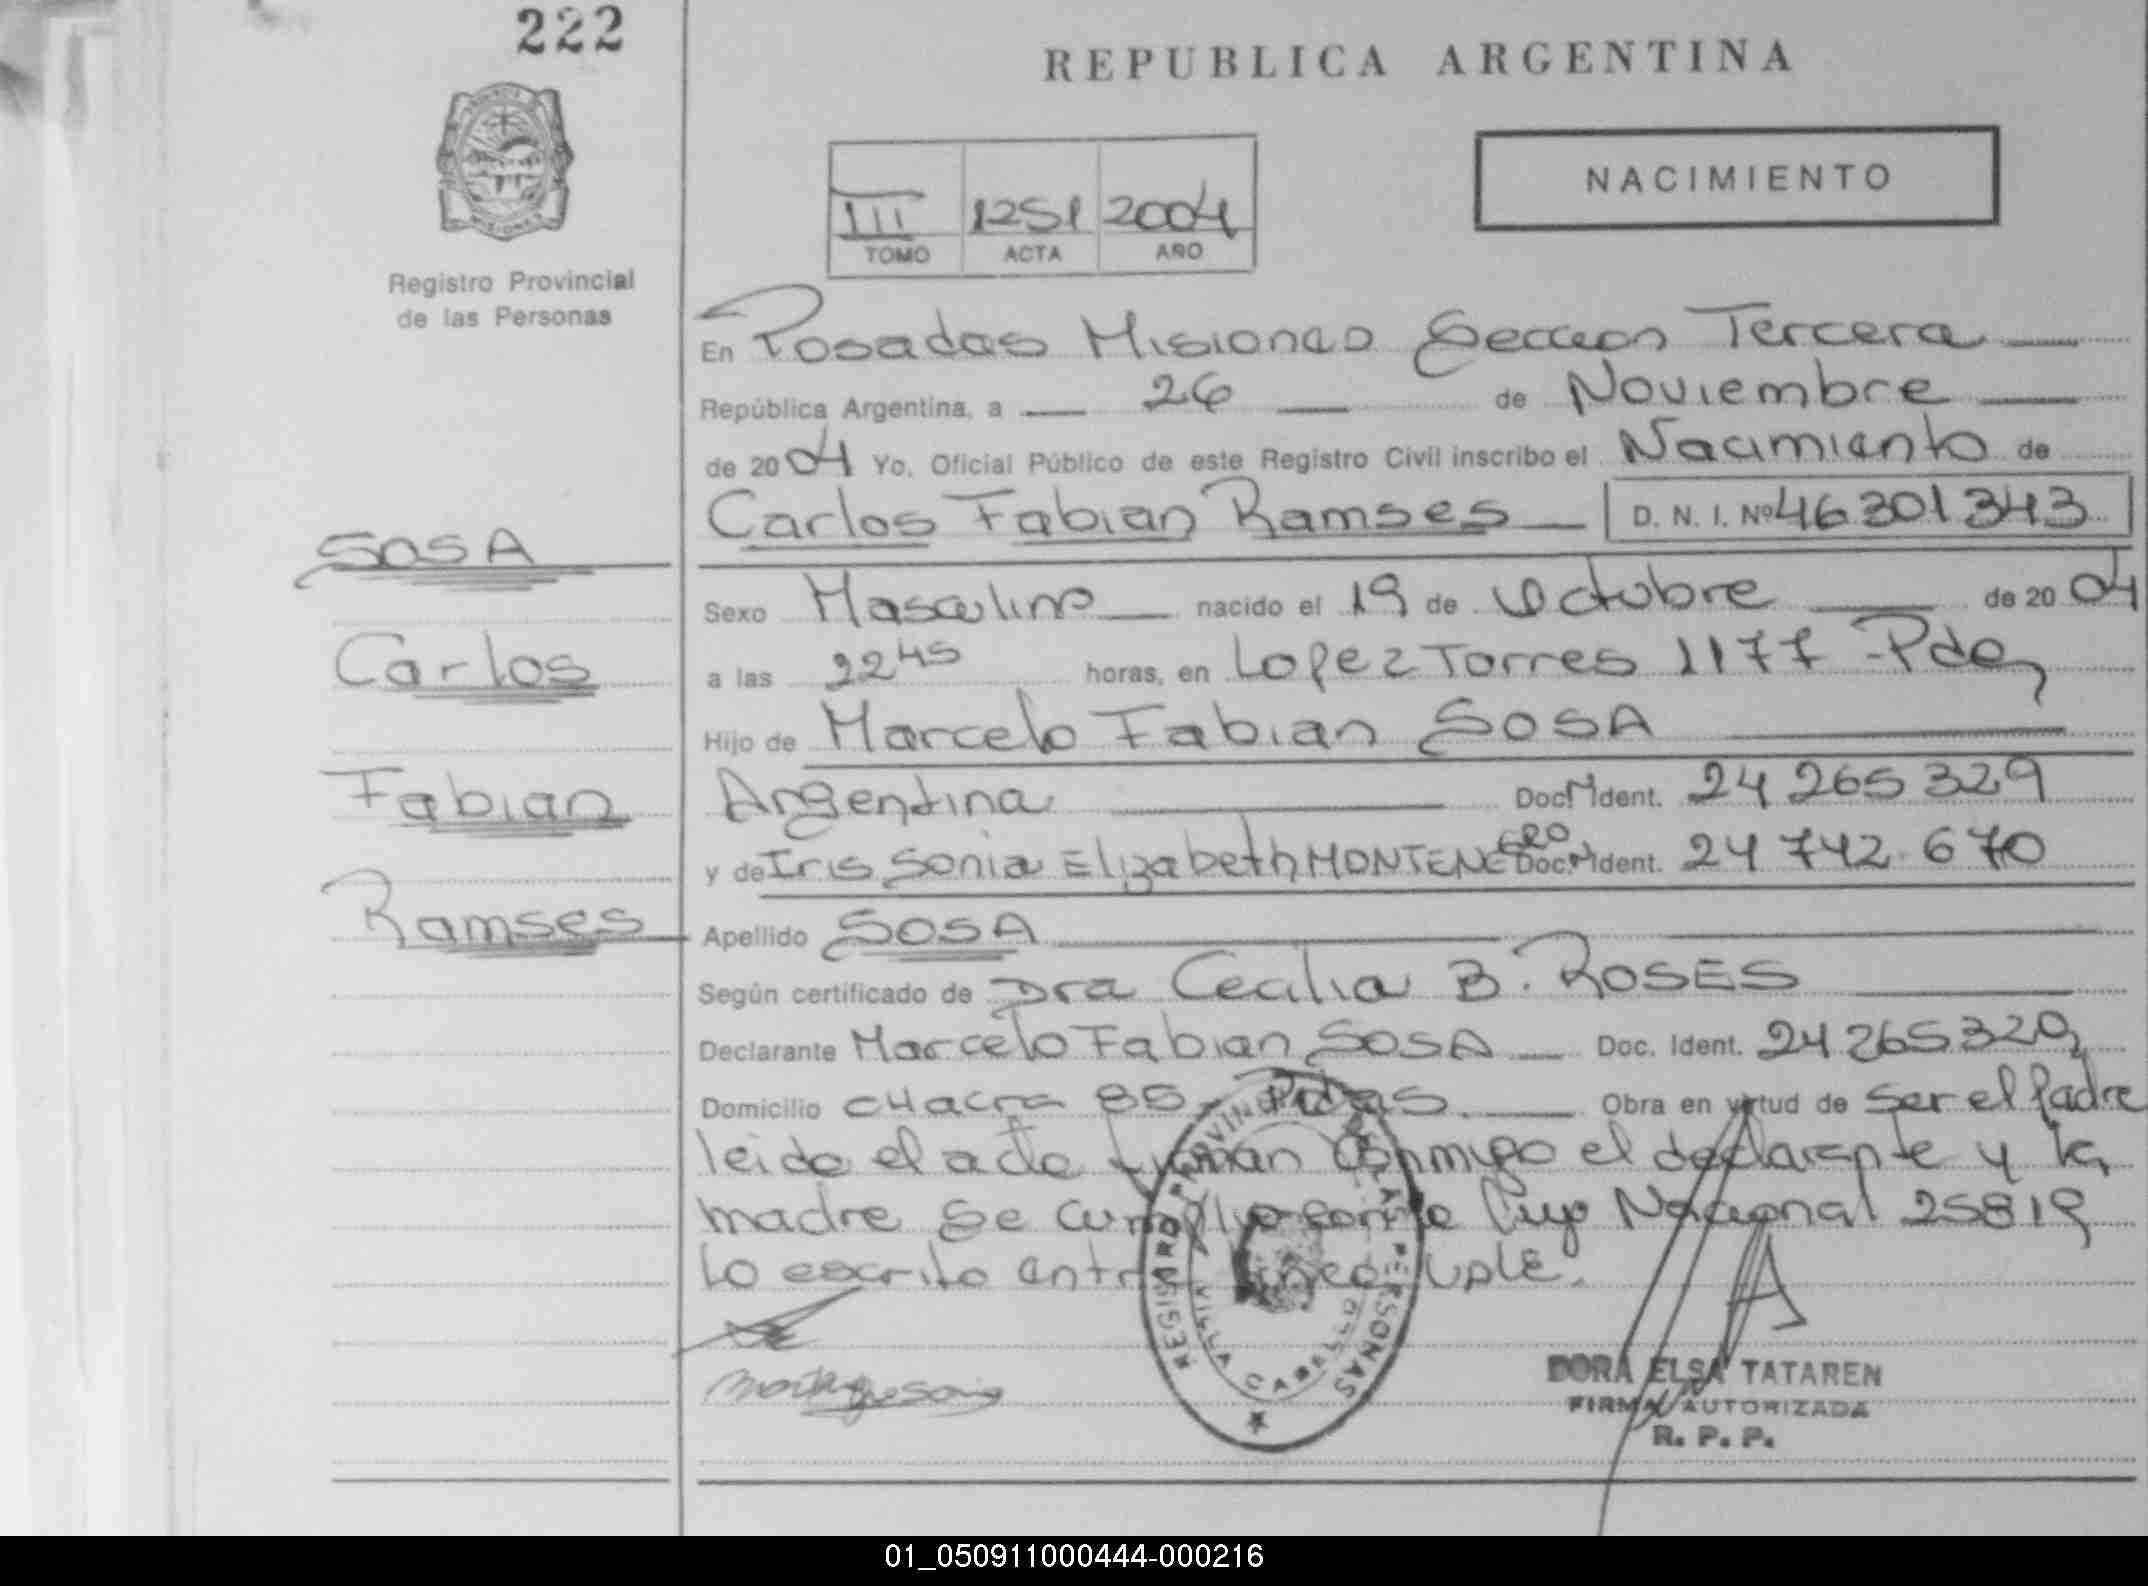 222
REPUBLICA ARGENTINA
NACIMIENTO
III 1251 2004
TOMO ACTA AÑO
Registro Provincial
de las Personas
En Posadas Misiones Seccion Tercera
República Argentina, a 26 de Noviembre
de 2004 Yo, Oficial Público de este Registro Civil inscribo el Nacimiento de
Carlos Fabian Ramses D. N. I. Nº 46301343
SOSA
Carlos
Fabian
Ramses
Sexo Masculino nacido el 19 de Octubre de 2004
a las 22 45 horas, en Lopez Torres 1177 Pdas
Hijo de Marcelo Fabian SOSA
Argentina Doc. Ident. 24 265 329
y de Iris Sonia Elizabeth MONTENEGRO Doc. Ident. 24 742 670
Apellido SOSA
Según certificado de Dra Cecilia B. ROSES
Declarante Marcelo Fabian SOSA Doc. Ident. 24 265 329
Domicilio CHacra 85 Pdas. Obra en virtud de ser el padre
leido el acta firman conmigo el declarante y la
madre se cumplio con la Ley Nacional 25819
Lo escrito entre lineas vale.
REGISTRO PROVINCIAL DE LAS PERSONAS
VILLA CABELLO
DORA ELSA TATAREN
FIRMA AUTORIZADA
R. P. P.
01_050911000444-000216